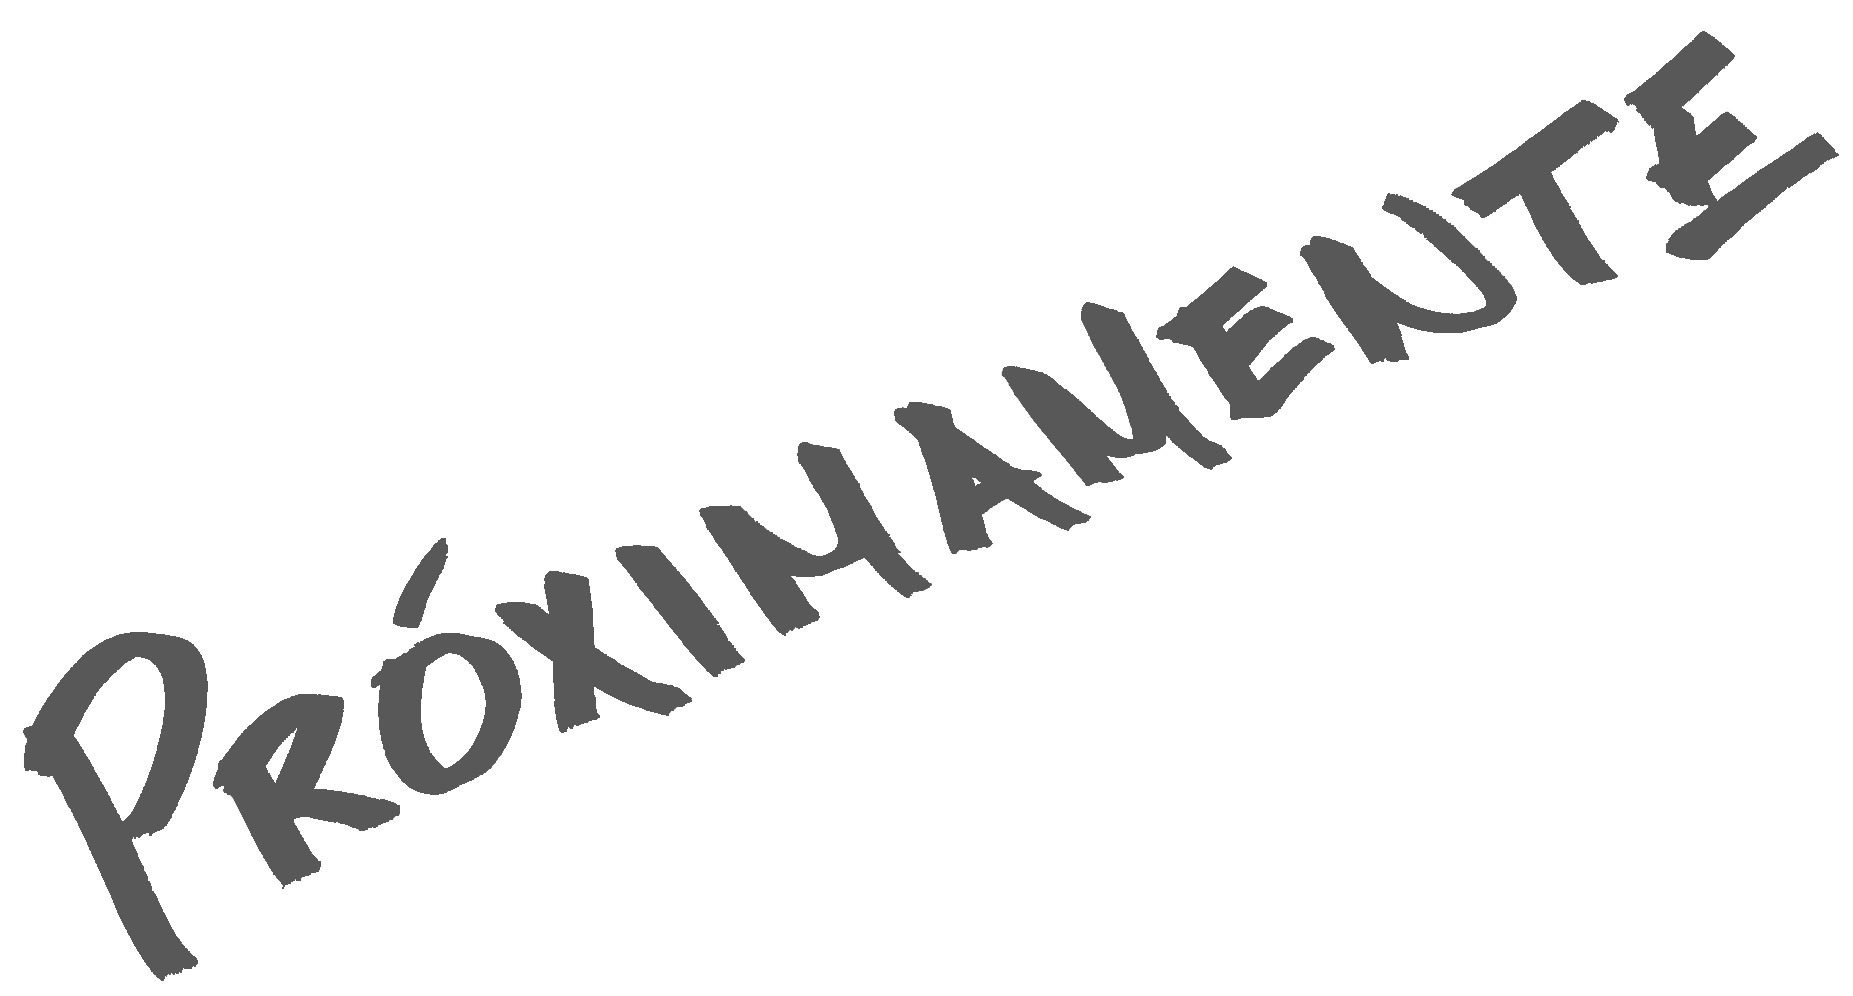 PRÓXIMAMENTE